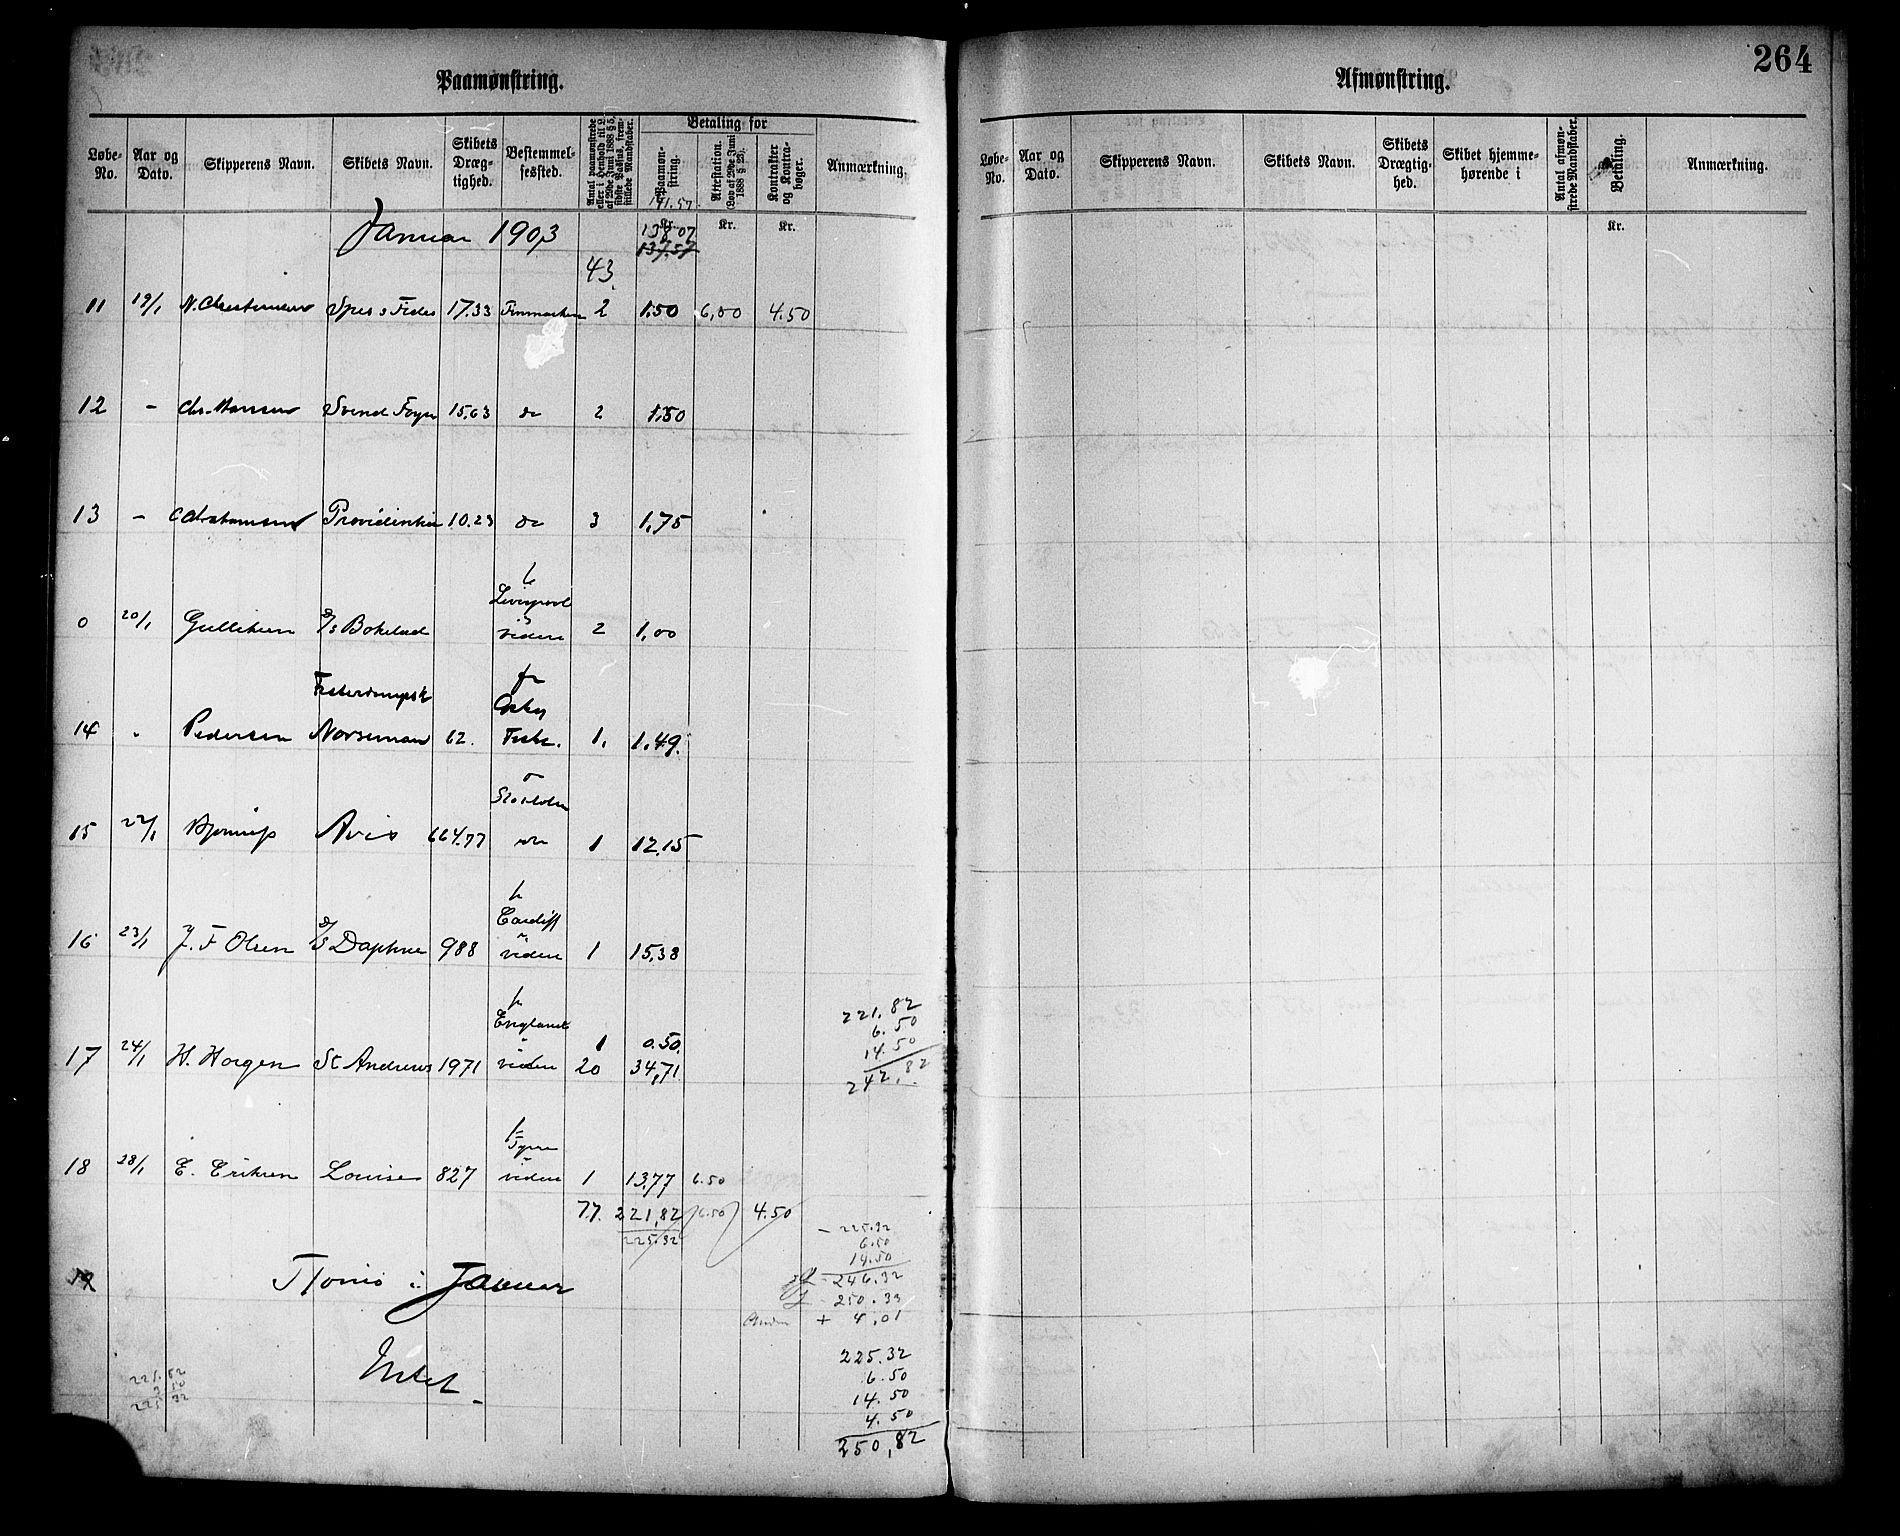 264
Paamønstring.
Løbe-No. Aar og Dato. Skipperens Navn. Skibets Navn. Skibets Dræg-tighed. Bestemmel-sessted. Antal paamønstrede eller i Henhold til 2 af 29de Juni 1888 § 5, sidste Passus, frem-stillede Mandskaber. Betaling for Paamøn-string. Attestation. (Lov af 29de Juni 1888 § 25). Kontrakter og Kontra-bøger. Anmærkning.
141.57
Kr. Kr.
Januar 1903 138 07
137.57
43.
11 19/1 N. Christensen Spes & Fides 17.33 Finmarken 2 1.50 6,00 4.50
12 - Chr. Hansen Svend Foyn 15,63 do 2 1.50
13 - C Abrahamsen Providentia 10.23 do 3 1,75
Liverpool
0 20/1 Gulliksen S/S Bokelad videre 2 1,00
14 Pedersen Norseman 62. Fiske. 1. 1.49.
Stockholm
15 22/1 Avis 664.77 1 12.15
Cardiff
16 23/1 J. F Olsen S/S Daphne 988 videre 1 15,38
England
1 0.50.
17 24/1 H. Horgen St Andrews 1971 videre 20 34,71
221,82
6.50
14.50
242,82
Tyne
18 28/1 E. Eriksen Louise 827 videre 1 13,77 6.50
77. 221,82 6.50 4.50
225.32
- 225.32
6.50
14.50
246.32
19 i Januar
250.33
+ 4,01
Intet
225.32
6.50
14.50
4.50
250,82
221.82
3 50
225 32
Afmønstring.
Løbe-No. Aar og Dato. Skipperens Navn. Skibets Navn. Skibets Drægtig-hed. Skibet hjemme-hørende i Antal afmøn-strede Mandskaber. Betaling. Anmærkning.
Kr.